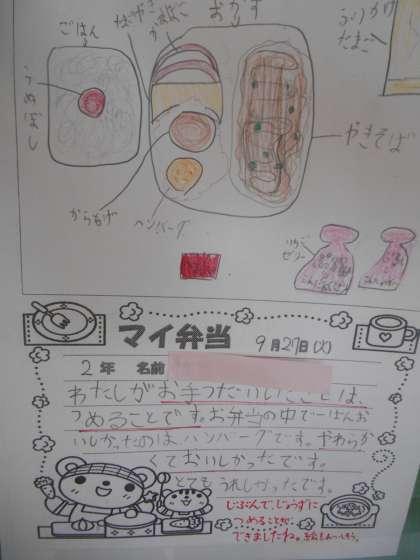 おかず
ごはん
かまぼこ
ふりかけ
たまご
うめぼし
やきそば
からあげ
ハンバーグ
ゼリー
マイ弁当
9月27日(火)
2年 名前
わたしがお手つだいしたことは、
つめることです。お弁当の中で一ばんお
いしかったのはハンバーグです。やわらか
くておいしかったです。
とてもうれしかったです。
じぶんで、じょうずに
つめることが
できましたね。